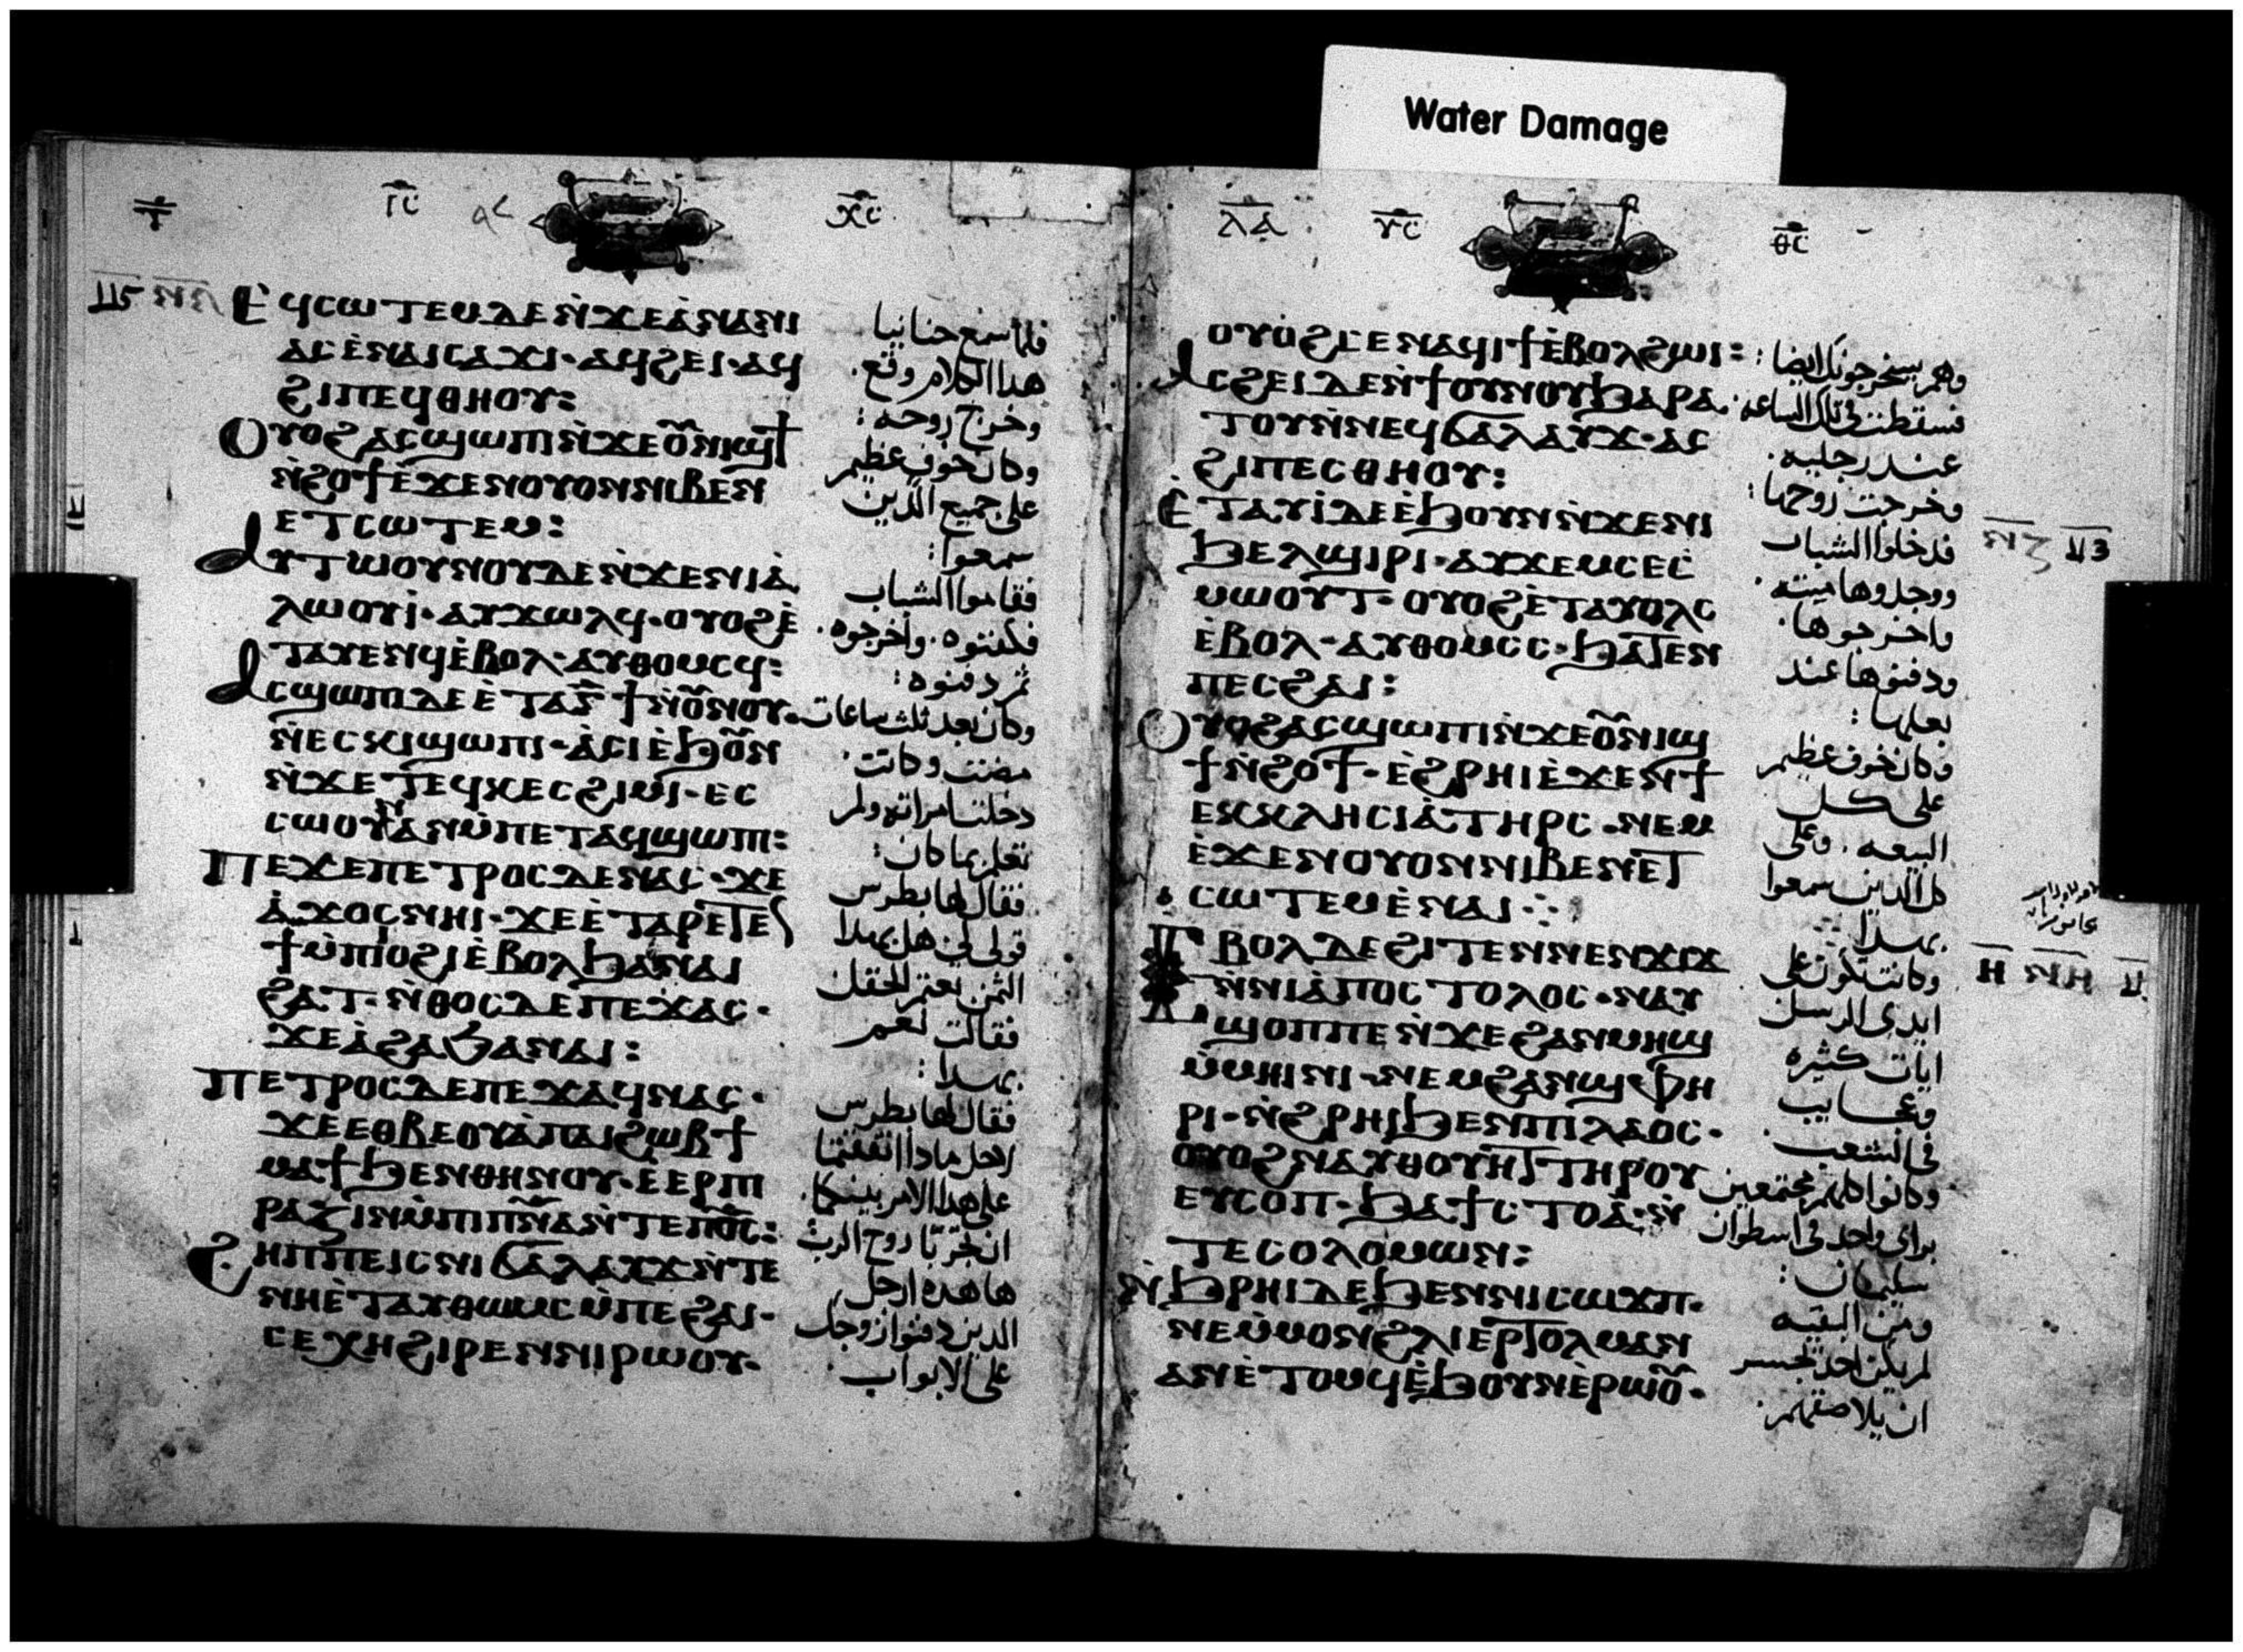 Water Damage
ⲓ̅ⲥ̅
ⲭ̅ⲥ̅
Ⲉϥⲥⲱⲧⲉⲙⲇⲉⲛ̀ϫⲉⲁ̀ⲛⲁⲛⲓ
ⲁⲥⲉ̀ⲛⲁⲓⲥⲁϫⲓ· ⲁϥϩⲉⲓ· ⲁϥ
ϩⲓⲡⲉϥⲑⲏⲟⲩ:
Ⲟⲩⲟϩⲁⲥϣⲱⲡⲓⲛ̀ϫⲉⲟ̅ⲛⲓϣϯ
ⲛ̀ϩⲟϯⲉ̀ϫⲉⲛⲟⲩⲟⲛⲛⲓⲃⲉⲛ
ⲉⲧⲥⲱⲧⲉⲙ:
Ⲁⲩⲧⲱⲟⲩⲛⲟⲩⲇⲉⲛ̀ϫⲉⲛⲓⲁ̀
ⲗⲱⲟⲩⲓ̀· ⲁⲩⲕⲱⲗϥ· ⲟⲩⲟϩⲉ̀
ⲧⲁⲩⲉⲛϥⲉ̀ⲃⲟⲗ· ⲁⲩⲑⲟⲙⲥϥ:
Ⲁⲥϣⲱⲡⲓⲇⲉⲉ̀ⲧⲁⲅ̅ϯⲛ̀ⲟ̅ⲛⲟⲩ·
ⲛ̀ⲉⲥⲕⲓϣⲱⲡⲓ· ⲁ̀ⲥⲓⲉ̀ϧⲟ̅ⲛ
ⲛ̀ϫⲉⲧⲉϥⲕⲉⲥϩⲓⲙⲓ· ⲉⲥ
ⲥⲱⲟⲩⲛⲁⲛⲙ̀ⲡⲉⲧⲁϥϣⲱⲡⲓ:
Ⲡⲉϫⲉⲡⲉⲧⲣⲟⲥⲇⲉⲛⲁⲥ· ϫⲉ
ⲁ̀ϫⲟⲥⲛⲏⲓ· ϫⲉⲉ̀ⲧⲁⲣⲉⲧⲉⲛ
ϯⲙ̀ⲡⲓⲟϩⲓⲉ̀ⲃⲟⲗϧⲁⲛⲁⲓ
ϩⲁⲧ· ⲛ̀ⲑⲟⲥⲇⲉⲡⲉϫⲁⲥ·
ϫⲉⲁ̀ϩⲁϧⲁⲛⲁⲓ:
Ⲡⲉⲧⲣⲟⲥⲇⲉⲡⲉϫⲁϥⲛⲁⲥ·
ϫⲉⲉⲑⲃⲉⲟⲩⲁ̀ⲡⲁⲓϩⲱⲃϯ
ⲙⲁϯϧⲉⲛⲑⲏⲛⲟⲩ· ⲉ̀ⲉⲣⲡⲓ
ⲣⲁⲍⲓⲛⲙ̀ⲡⲓⲡ̅ⲛ̅ⲁⲛ̀ⲧⲉⲡ⳪:
Ϩⲏⲡⲡⲉⲓⲥⲛⲓϭⲁⲗⲁⲩϫⲛ̀ⲧⲉ
ⲛⲏⲉ̀ⲧⲁⲩⲑⲱⲙⲥⲙ̀ⲡⲉϩⲁⲓ·
ⲥⲉⲭⲏϩⲓⲣⲉⲛⲛⲓⲣⲱⲟⲩ·
فلما سمع حنانيا
هذا الكلام وقع·
وخرج روحه:
وكان خوف عظيم
على جميع الذين
سمعوا:
فقاموا الشباب
فكفنوه· واخرجوه·
ثم دفنوه:
وكان بعد ثلث ساعات
مضت وكانت·
دخلت امراته ولم
تعلم بما كان:
فقال لها بطرس
قولى لى هل بهذا
الثمن بعتم الحقل
فقالت نعم
بهذا:
فقال لها بطرس
لاجل ماذا اتفقتما
على هذا الامر بينكما·
ان تجربا روح الرب
ها هذه ارجل
الذين دفنوا زوجك
على الابواب·
ⲗⲁ
ⲩ̅ⲥ̅
ⲑ̅ⲥ̅
ⲟⲩⲟ̀ϩⲥⲉⲛⲁϥⲓϯⲉ̀ⲃⲟⲗϩⲱⲓ:
Ⲁⲥϩⲉⲓⲇⲉⲛ̀ϯⲟⲩⲛⲟⲩϧⲁⲣⲁ·
ⲧⲟⲩⲛ̀ⲛⲉϥϭⲁⲗⲁⲩϫ· ⲁⲥ
ϩⲓⲡⲉⲥⲑⲏⲟⲩ:
Ⲉ̀ⲧⲁⲩⲓ̀ⲇⲉⲉ̀ϧⲟⲩⲛⲛ̀ϫⲉⲛⲓ
ϧⲉⲗϣⲓⲣⲓ· ⲁⲩϫⲉⲙⲥⲉⲥ̀
ⲙⲱⲟⲩⲧ· ⲟⲩⲟϩⲉ̀ⲧⲁⲩⲟⲗⲥ
ⲉ̀ⲃⲟⲗ· ⲁⲩⲑⲟⲙⲥⲥ· ϧⲁⲧⲉⲛ
ⲡⲉⲥϩⲁⲓ:
Ⲟⲩⲟϩⲁⲥϣⲱⲡⲓⲛ̀ϫⲉⲟ̅ⲛⲓϣ
ϯⲛ̀ϩⲟϯ· ⲉ̀ϩⲣⲏⲓⲉ̀ϫⲉⲛϯ
ⲉⲕⲕⲗⲏⲥⲓⲁ̀ⲧⲏⲣⲥ· ⲛⲉⲙ
ⲉ̀ϫⲉⲛⲟⲩⲟⲛⲛⲓⲃⲉⲛⲉⲧ
ⲥⲱⲧⲉⲙⲉ̀ⲛⲁⲓ
Ⲉⲃⲟⲗⲇⲉϩⲓⲧⲉⲛⲛⲉⲛϫⲓϫ
ⲛ̀ⲛⲓⲁ̀ⲡⲟⲥⲧⲟⲗⲟⲥ· ⲛⲁⲩ
ϣⲟⲡⲡⲉⲛ̀ϫⲉϩⲁⲛⲙⲏϣ
ⲙ̀ⲙⲏⲓⲛⲓ· ⲛⲉⲙϩⲁⲛϣⲫⲏ
ⲣⲓ· ⲛ̀ϩⲣⲏⲓϧⲉⲛⲡⲓⲗⲁⲟⲥ·
ⲟⲩⲟϩⲛⲁⲩⲑⲟⲩⲏⲧⲧⲏⲣⲟⲩ
ⲉⲩⲥⲟⲡ· ϧⲁϯⲥⲧⲟⲁ̀· ⲛ̀
ⲧⲉⲥⲟⲗⲟⲙⲱⲛ:
Ⲛ̀ϧⲣⲏⲓⲇⲉϧⲉⲛⲛⲓⲥⲱϫⲡ·
ⲛⲉⲙ̀ⲙⲟⲛϩⲗⲓⲉⲣⲧⲟⲗⲙⲁⲛ
ⲁⲛⲉ̀ⲧⲟⲙϥⲉ̀ϧⲟⲩⲛⲉ̀ⲣⲱⲟ̅·
وهم سيخرجونك ايضا:
فسقطت فى تلك الساعه·
عند رجليه·
وخرجت روحها:
فدخلوا الشباب
ووجدوها ميته·
واخرجوها·
ودفنوها عند
بعلها:
وكان خوف عظيم
على كل
البيعه· وعلى
كل الذين سمعوا
بهذا
وكانت تكون على
ايدى الرسل
ايات كثيره
وعجايب
فى الشعب·
وكانوا كلهم مجتمعين
براى واحد فى اسطوان
سليمان:
ومن البقيه
لم يكن احد يجسر
ان يلاصقهم·
ⲛⲍ
ⲏ ⲛⲏ